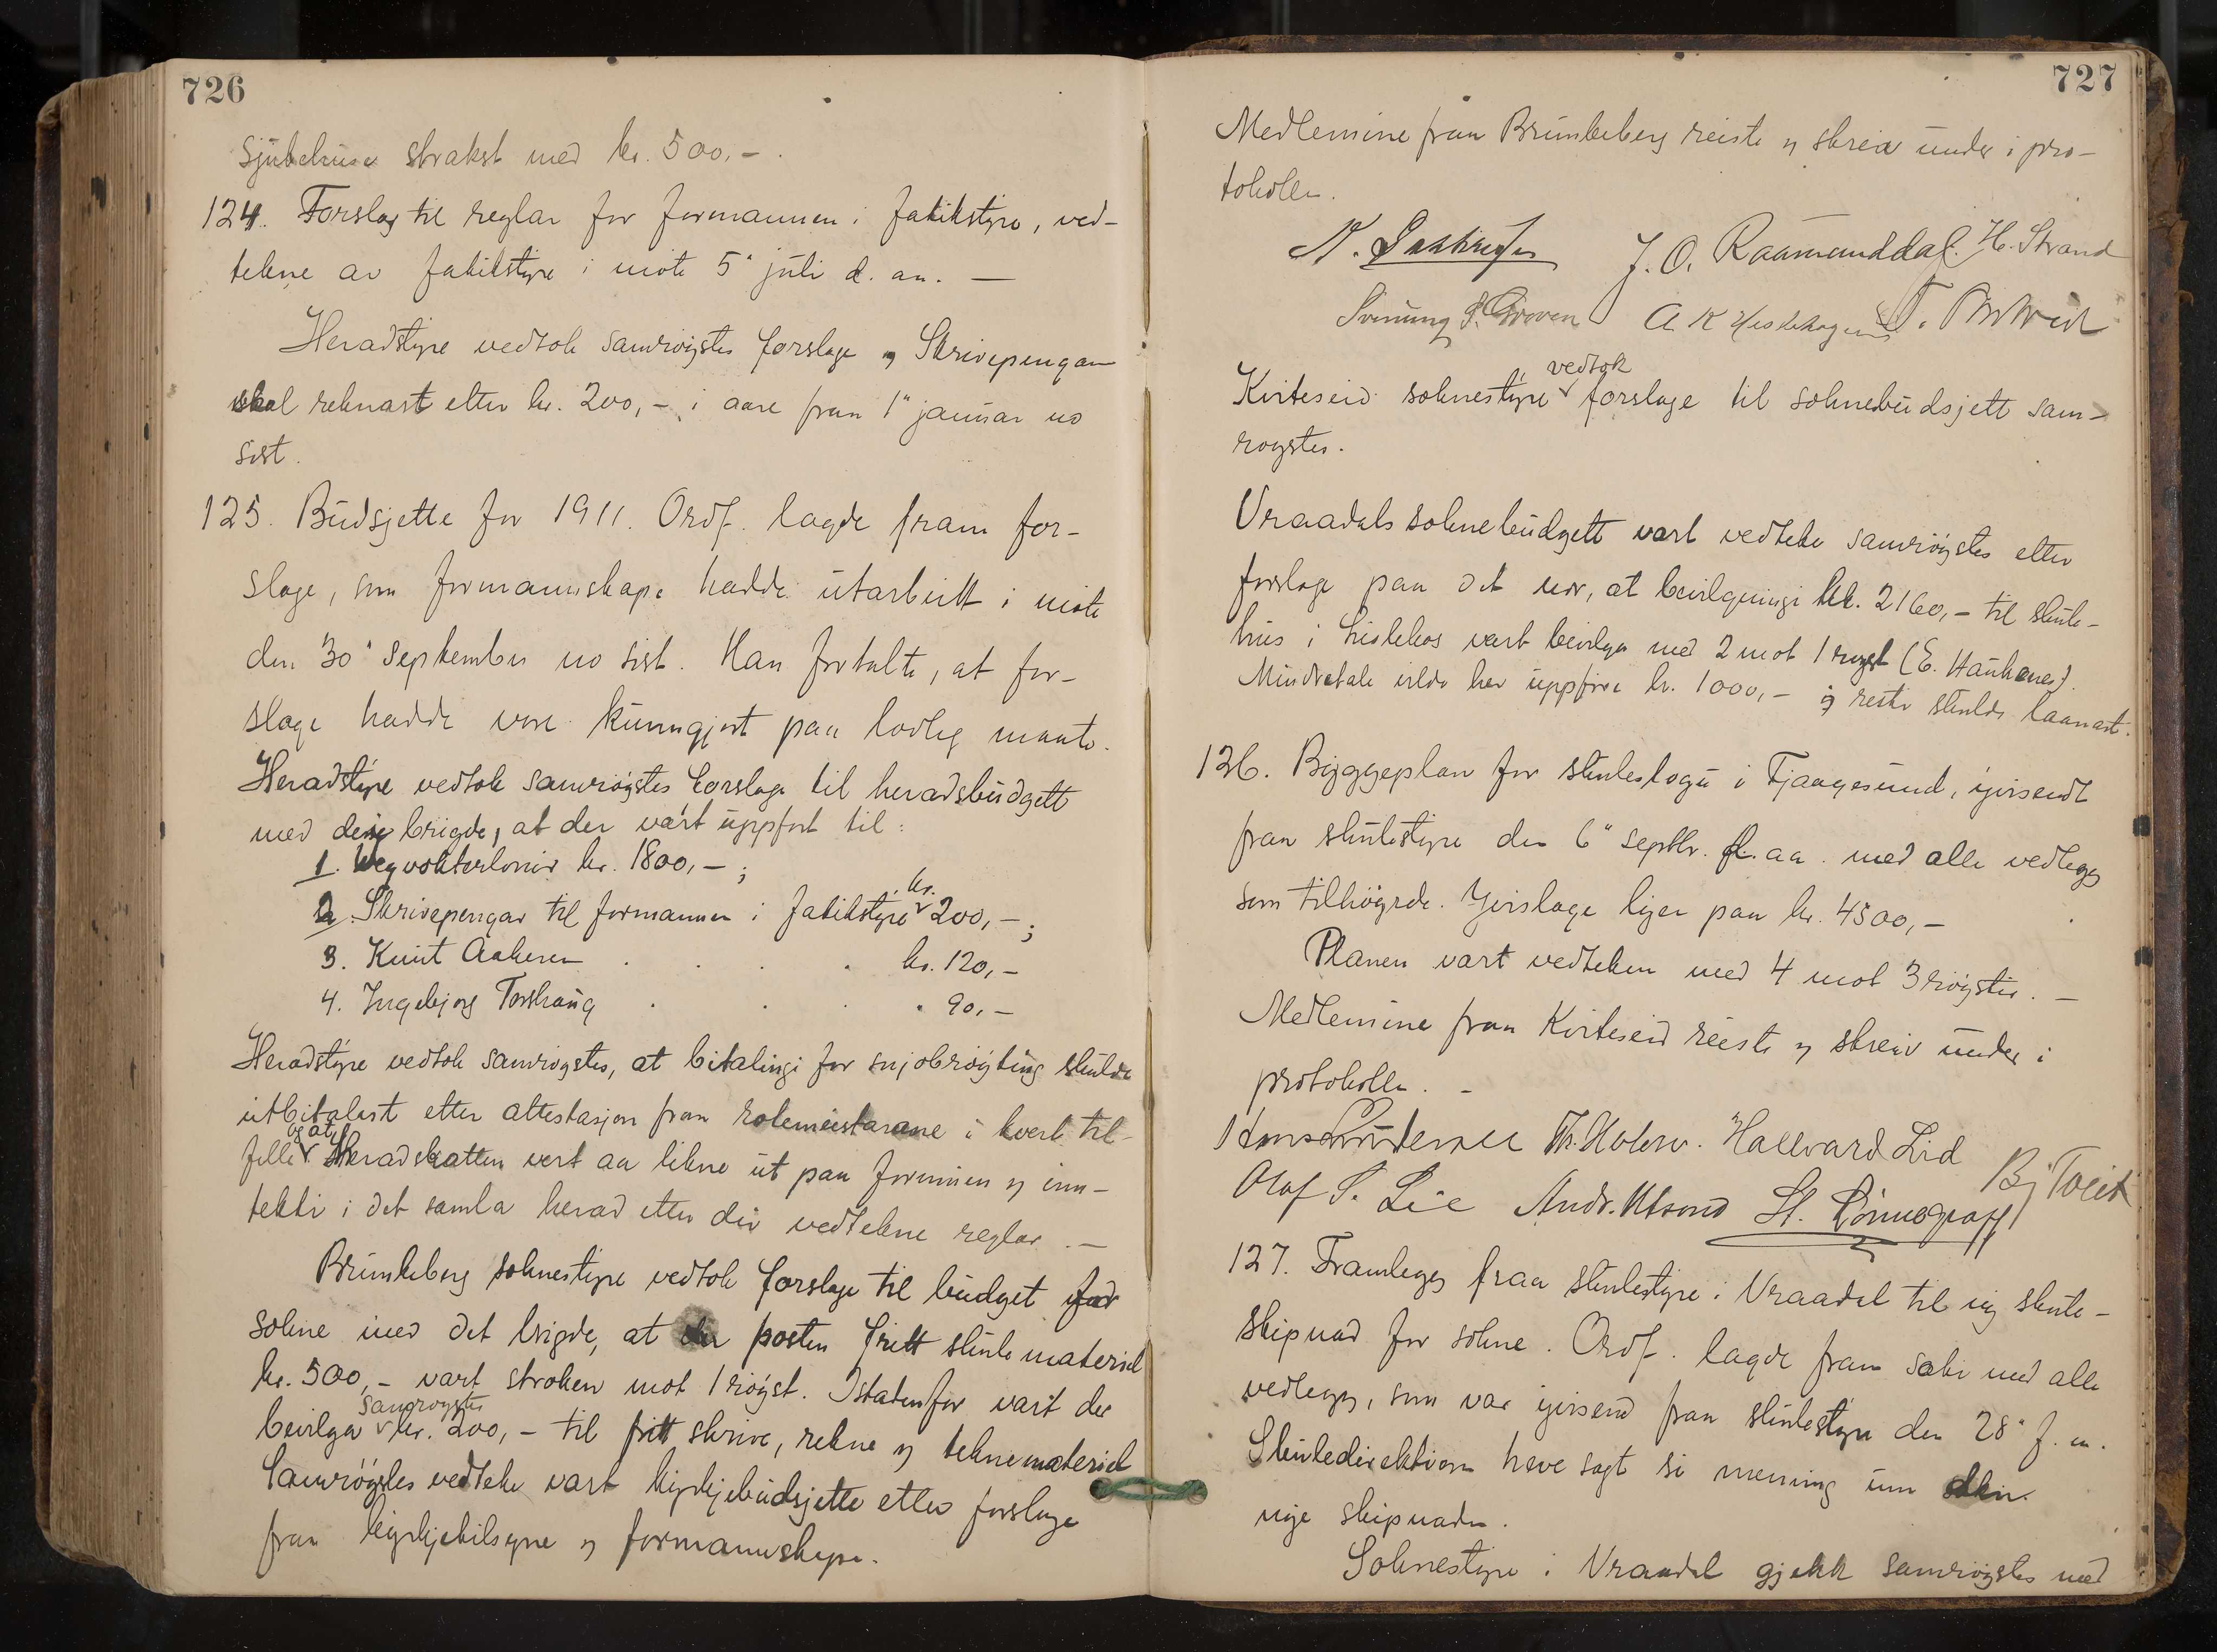 726
sjukehuse strakst med kr. 500,-.
124. Forslag til reglar for formannen i fatikstyre, ved-
tekne av fatikstyre i møte 5" juli d. aa. —
Heradstyre vedtok samrøystes forslage og Skrivepengan
skal reknast etter kr. 200,- i aare fraa 1" januar no
sist.
125. Budsjette for 1911. Ordf. lagde fram for-
slage, som formannskape hadde utarbeidt i møte
den 30" september no sist. Han fortalte, at for-
slage hadde vore kunngjort paa lovleg maate.
Heradstyre vedtok samrøystes forslage til heradsbudgett
med dei brigde, at der vart uppført til:
1. Vegvokterlønir kr. 1800,-;
2. Skrivepengar til formannen i fatikstyre kr. 200,-;
3. Knut Aakeren . . . . kr. 120,-
4. Ingebjørg Torshaug . . . " 90,-
Heradstyre vedtok samrøystes, at bitalingi for snjobrøyting skulde
utbitalast etter attestasjon fraa rotemeistarane i kvert til-
felle og at Heradskatten vert aa likne ut paa formuen og inn-
tekti i det samla herad etter dei vedtekne reglar. —
Brunkeberg soknestyre vedtok forslage til budget for
sokne med det brigde, at posten fritt skulemateriel
kr. 500,- vart stroken mot 1 røyst. Istadenfor vart der
beivilga samrøystes kr. 200,- til fritt skrive, rekne og teknemateriel
Samrøystes vedteke vart kyrkjebudsjette etter forslage
fraa kyrkjetilsyne og formannskape.
727
Medlemine fraa Brunkeberg reiste og skreiv under i pro-
tokollen.
J. O. Raamunddal. H. Strand
Sveinung S. Groven A K
Kviteseid soknestyre vedtok forslage til soknebudsjett sam-
røystes.
Vraadals soknebudgett vart vedteke samrøystes etter
forslage paa det nær, at beivilgningi kr. 2160,- til skule-
hus i vart beivilga med 2 mot 1 røyst (E. Haukenes).
Mindretale vilde her uppføre kr. 1000,- og resten skulde laanast.
126. Byggeplan for skulestogu i Fjaagesund, yvirsendt
fraa skulestyre den 6" septbr. d. aa. med alle vedlegg
som tilhøyrde. Yvirslage ligg paa kr. 4500,-
Planen vart vedteken med 4 mot 3 røyster. —
Medlemine fraa Kviteseid reiste og skreiv under i
protokollen. -
Hallvard Lid
Olaf S. Lie Andr. Utsond St. Rønnograff Bj Tveit
127. Framlegg fraa skulestyre i Vraadal til ny skule-
skipnad for sokne. Ordf. lagde fram saki med alle
vedlegg, som var yvirsend fraa skulestyre den 28" f. m.
Skuledirektøren have sagt si meining um den
nye skipnaden.
Soknestyre i Vraadal gjekk samrøystes med